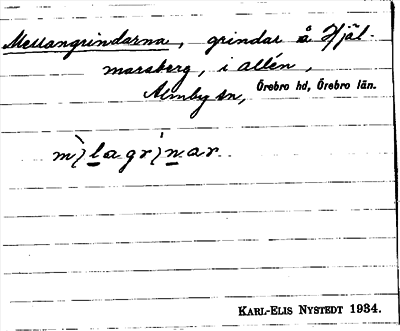 Mellangrindarna, grindar å Hjäl-
marsberg, i allén,
Almby sn, Örebro hd, Örebro län.
m)̀lagr)̍nar.
KARL-ELIS NYSTEDT 1934.